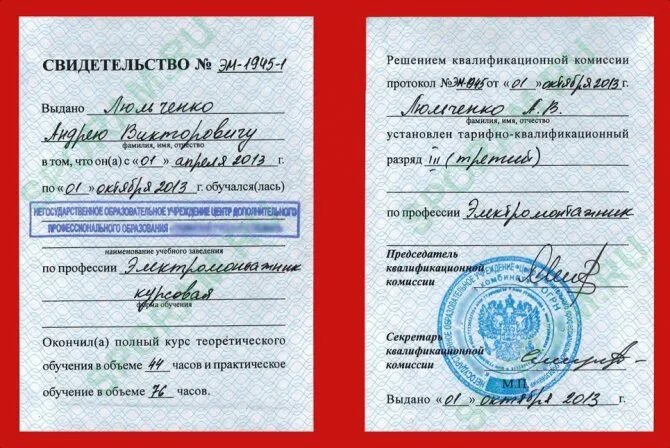 СВИДЕТЕЛЬСТВО № ЭМ-1945-1
Выдано Люмченко
Андрею Викторовичу
фамилия, имя, отчество
в том, что он(а) с «01» апреля 2013 г.
по «01» октября 2013 г. обучался(лась)
НЕГОСУДАРСТВЕННОЕ ОБРАЗОВАТЕЛЬНОЕ УЧРЕЖДЕНИЕ ЦЕНТР ДОПОЛНИТЕЛЬНОГО
ПРОФЕССИОНАЛЬНОГО ОБРАЗОВАНИЯ
наименование учебного заведения
по профессии Электромонтажник
курсовая
форма обучения
Окончил(а) полный курс теоретического
обучения в объеме 44 часов и практическое
обучение в объеме 76 часов.
Решением квалификационной комиссии
протокол № ЭМ-1945 от «01» октября 2013 г.
Люмченко А.В.
фамилия, имя, отчество
установлен тарифно-квалификационный
разряд III (третий)
по профессии Электромонтажник
Председатель
квалификационной
комиссии
Секретарь
квалификационной
комиссии
М.П.
Выдано «01» октября 2013 г.